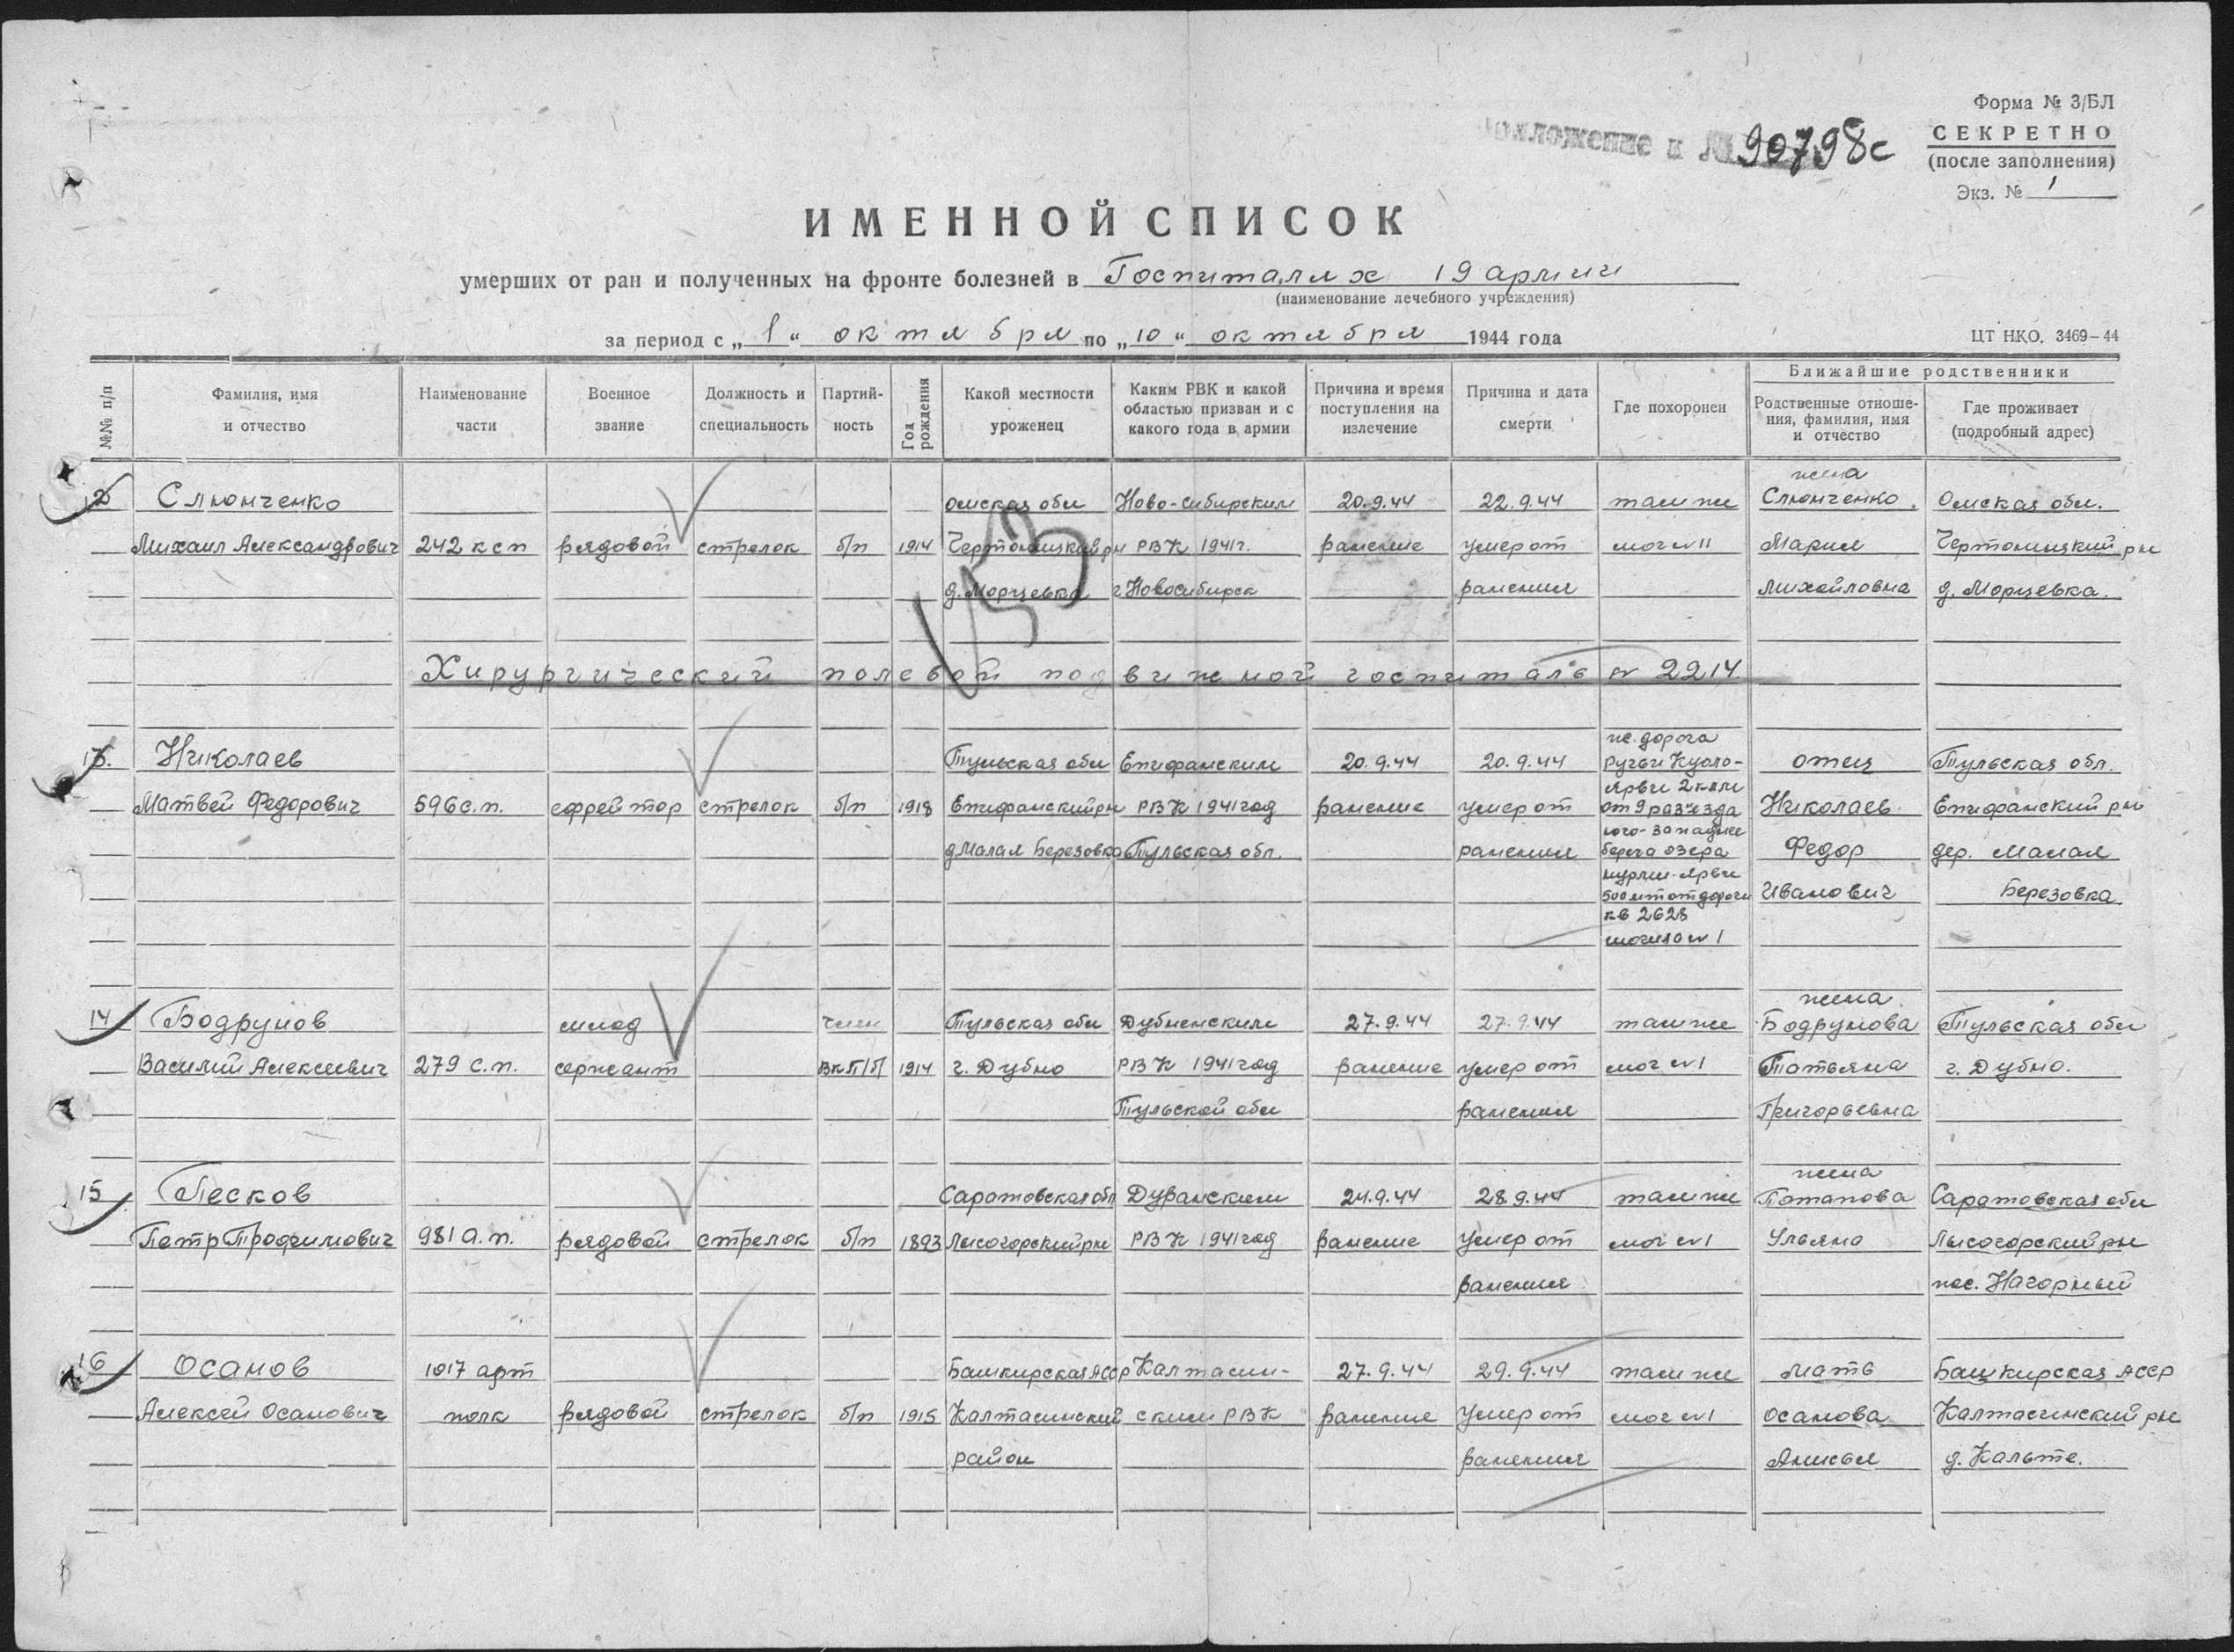 Форма № 3/БЛ
СЕКРЕТНО
(после заполнения)
Экз. № 1
приложение к № 90798с
ИМЕННОЙ СПИСОК
умерших от ран и полученных на фронте болезней в Госпиталях 19 армии
(наименование лечебного учреждения)
за период с „1“ октября по „10“ октября 1944 года
ЦТ НКО. 3469-44
№№ п/п | Фамилия, имя и отчество | Наименование части | Военное звание | Должность и специальность | Партий-ность | Год рождения | Какой местности уроженец | Каким РВК и какой областью призван и с какого года в армии | Причина и время поступления на излечение | Причина и дата смерти | Где похоронен | Ближайшие родственники
Родственные отноше-ния, фамилия, имя и отчество | Где проживает (подробный адрес)
жена
12 Слюнченко омская обл Ново-Сибирским 20.9.44 22.9.44 там же Слюнченко Омская обл.
Михаил Александрович 242 ксп рядовой стрелок б/п 1914 РВК 1941г. ранение умер от мог №11 Мария
д. Морцевка г. Новосибирск ранения Михайловна д. Морцевка.
153
Хирургический полевой подвижной госпиталь № 2214.
жс. дорога
13. Николаев Тульская обл Епифанским 20.9.44 20.9.44 ручьи Куоло- отец Тульская обл.
ярви 2 клм
Матвей Федорович 596 с.п. ефрейтор стрелок б/п 1918 Епифанский рн РВК 1941год ранение умер от от 9 раз'езда Николаев Епифанский рн
юго-западнее
д Малая Березовка Тульская обл. ранения берега озера Федор дер. Малая
ярви
500 мт от дороги Иванович Березовка
кв 2628
могила №1
жена
14 Бодрунов млад член Тульская обл Дубненским 27.9.44 27.9.44 там же Бодрунова Тульская обл
Василий Алексеевич 279 с.п. сержант ВКП/б/ 1914 г. Дубно РВК 1941год ранение умер от мог №1 Татьяна г. Дубно.
Тульской обл ранения Григорьевна
жена
15 Песков Саратовская обл Дуранским 24.9.44 28.9.44 там же Потапова Саратовская обл
Петр Трофимович 981 а.п. рядовой стрелок б/п 1893 Лысогорский рн РВК 1941год ранение умер от мог №1 Ульяна Лысогорский рн
ранения пос. Нагорный
16 Осанов 1017 арт Башкирская АССР Калтасин- 27.9.44 29.9.44 там же Мать Башкирская АССР
Алексей Осанович полк рядовой стрелок б/п 1915 Калтасинский ским РВК ранение Умер от мог №1 Осанова Калтасинский рн
район ранения Анисья д. Кальте.